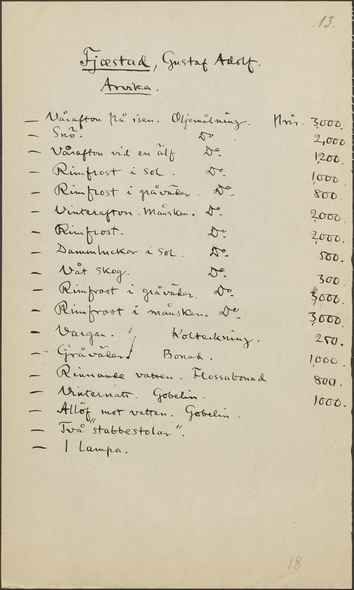 13.
Fjæstad, Gustaf Adolf.
Arvika.
— Vårafton på isen. Oljemålning. Pris. 3,000.
— Snö. Do. 2,000.
— Vårafton vid en älf Do. 1200.
— Rimfrost i Sol. Do. 1000.
— Rimfrost i gråväder. Do. 800.
— Vinterafton. Månsken. Do. 2,000.
— Rimfrost. Do. 2,000.
— Dammluckor i Sol. Do. 500.
— Våt skog. Do. 300.
— Rimfrost i gråväder. Do. 3,000.
— Rimfrost i månsken. Do. 3,000.
— Vargar. Kolteckning. 250.
— Gråväder. Bonad. 1,000.
— Rinnande vatten. Flossabonad 800.
— Vinternatt. Gobelin. 1000.
— Allöf mot vatten. Gobelin.
— Två "stabbestolar".
— 1 Lampa.
18